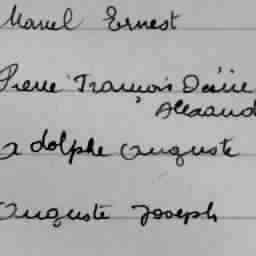 Marcel Ernest
Pierre François Désiré
Alexand
Adolphe Auguste
Auguste Joseph